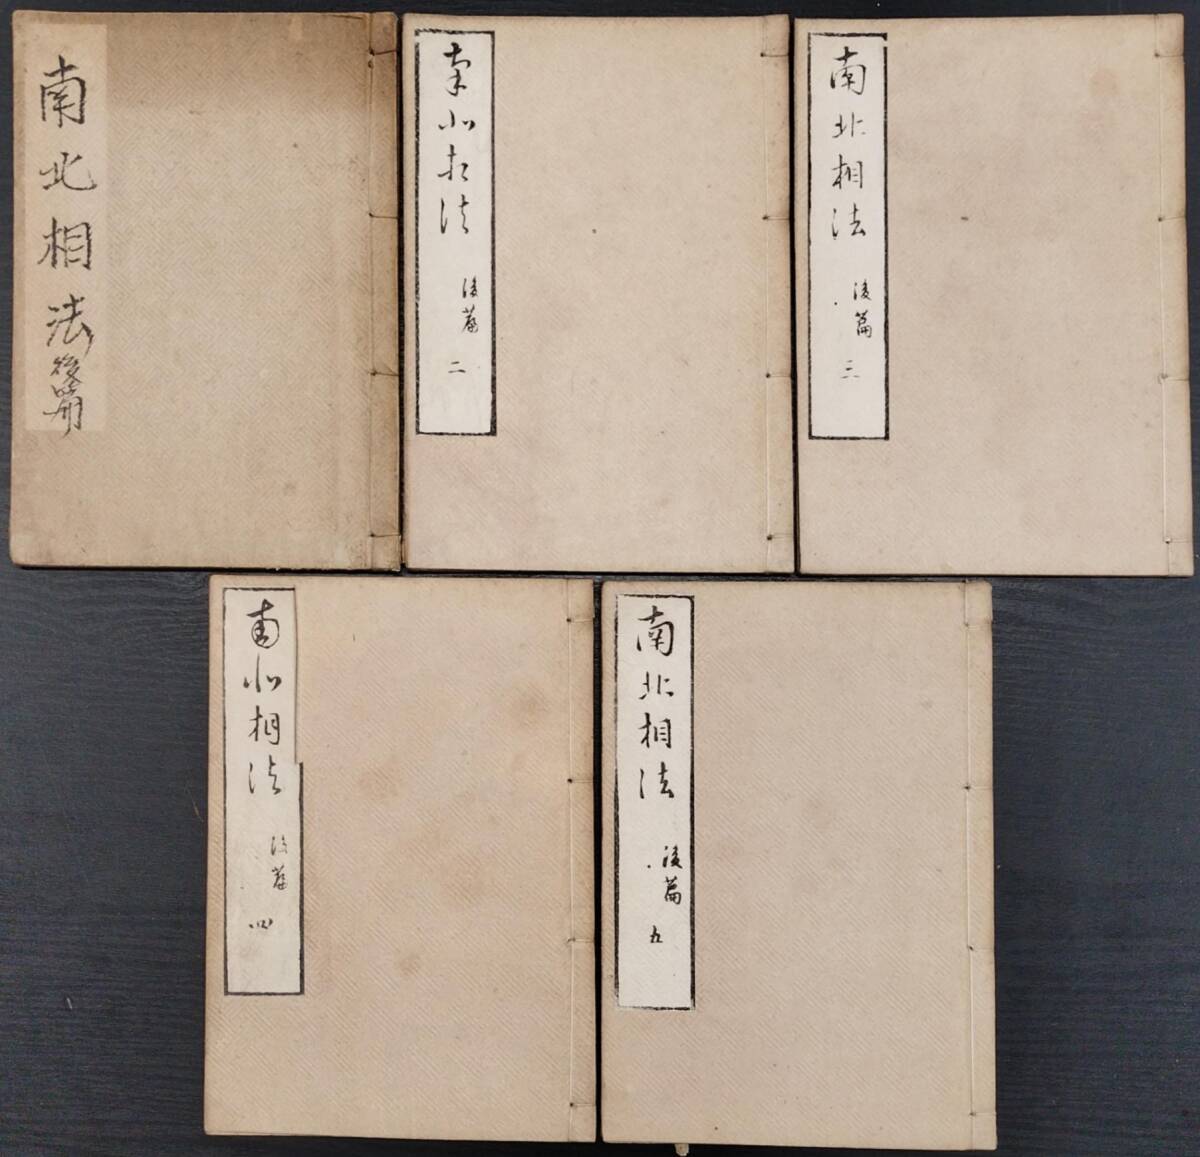 南北相法後篇
南北相法
後篇
二
南北相法
後篇
三
南北相法
後篇
四
南北相法
後篇
五